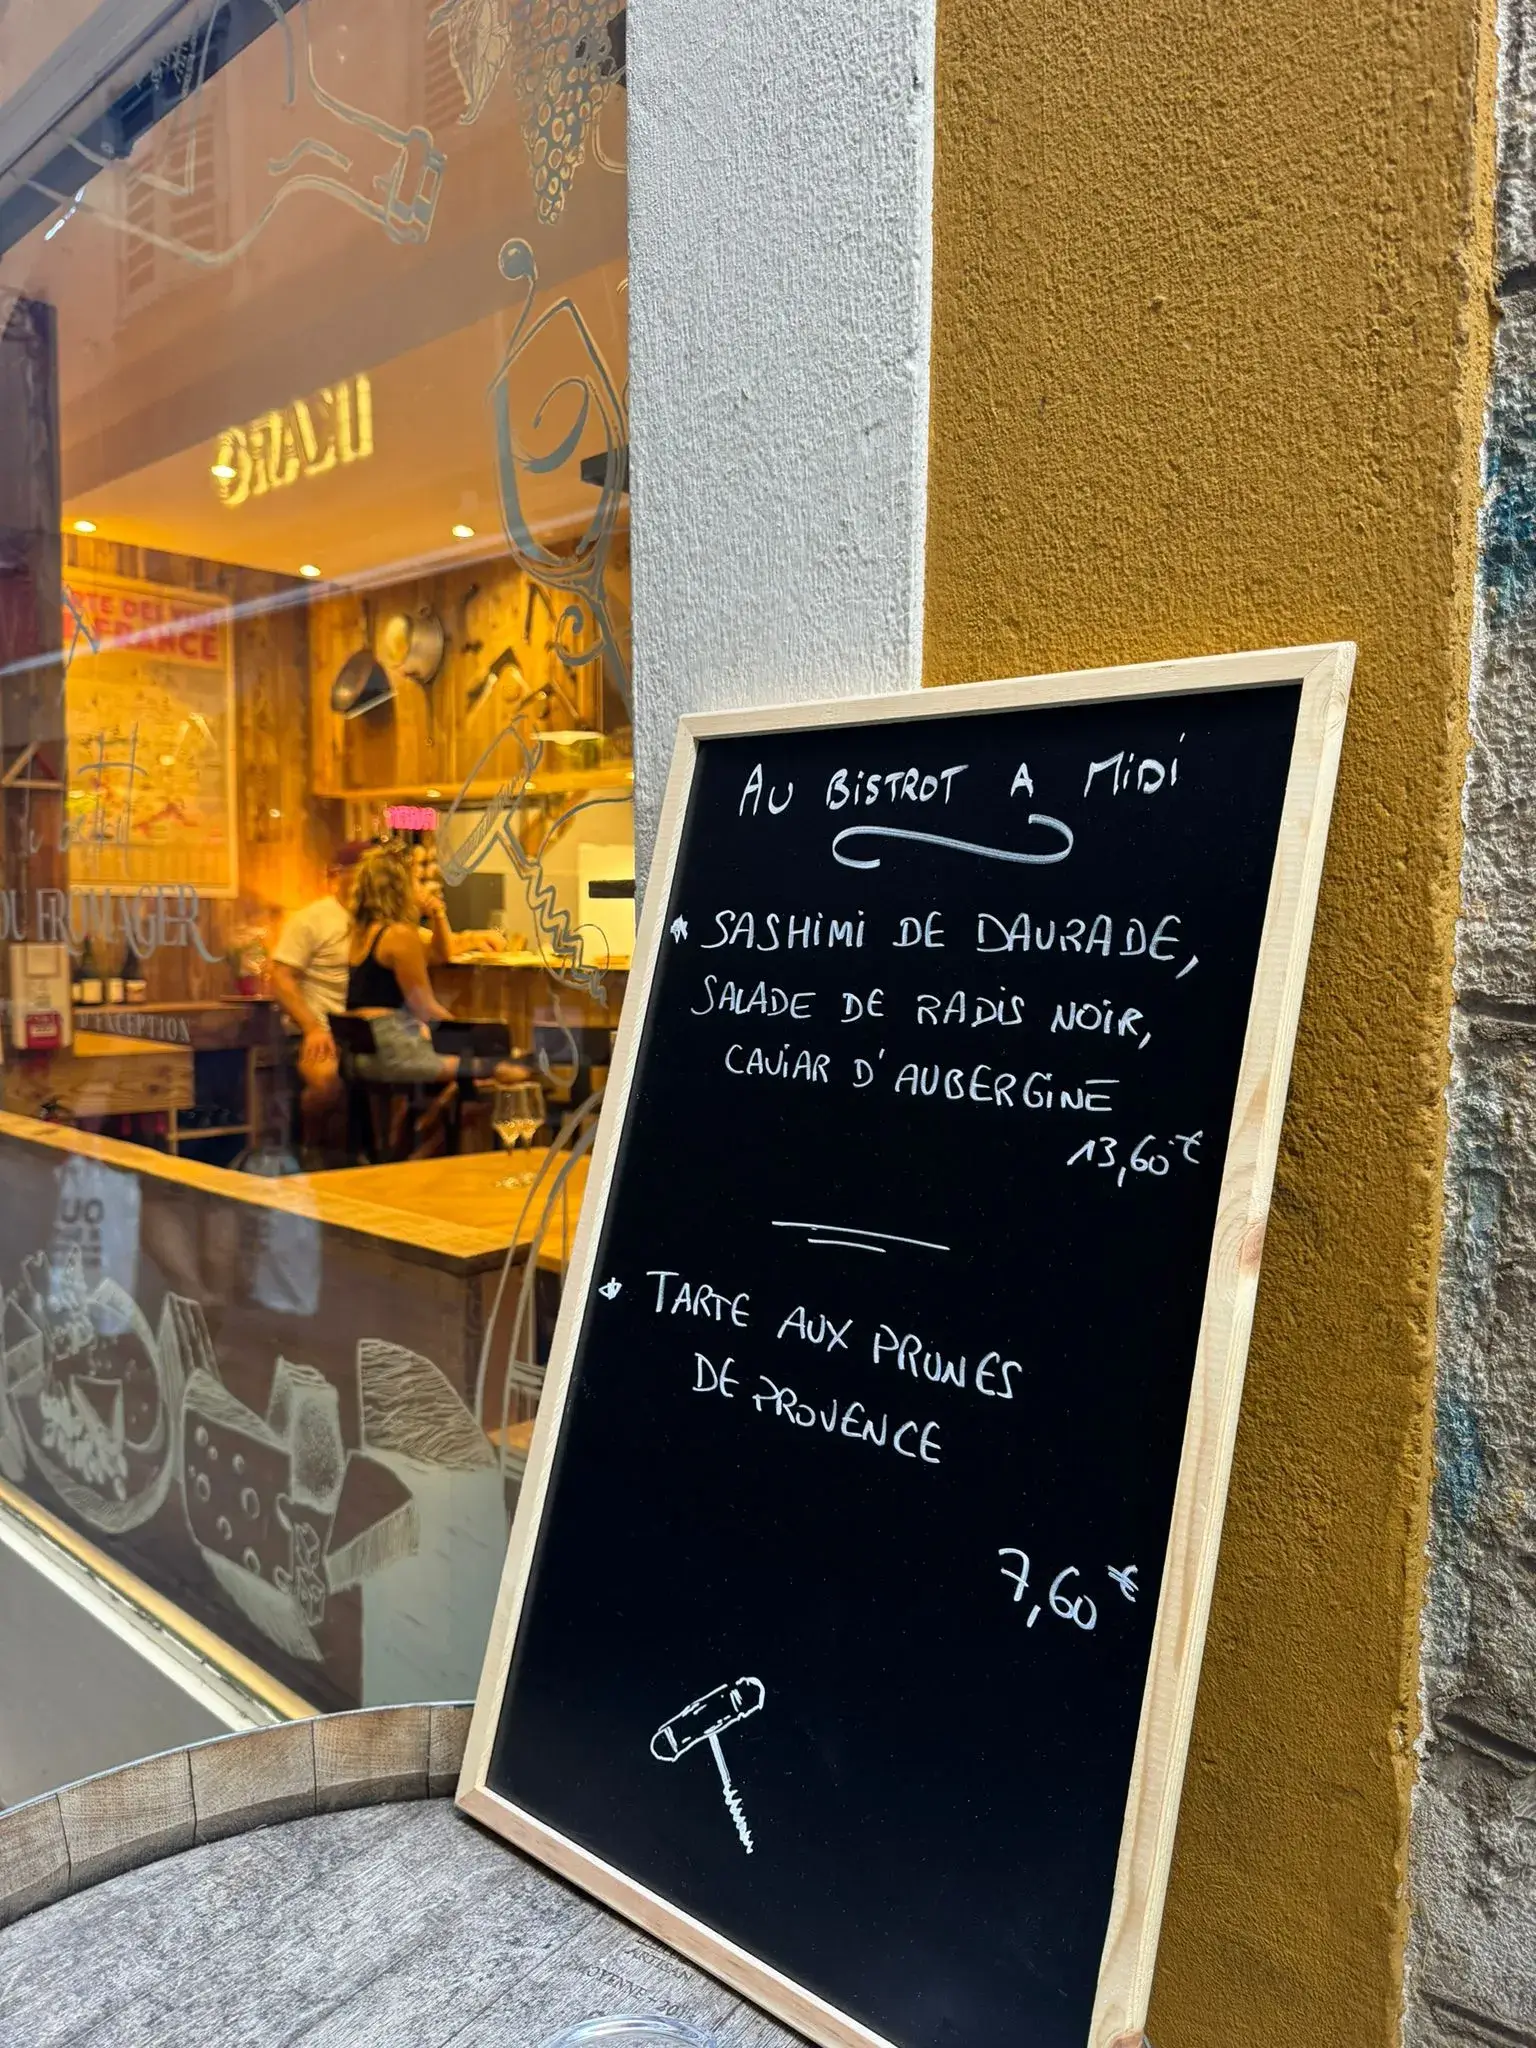 RTE DES VINS
FRANCE
DU FROMAGER
D'EXCEPTION
AU BISTROT A MIDI
* SASHIMI DE DAURADE,
SALADE DE RADIS NOIR,
CAVIAR D'AUBERGINE
13,60€
* TARTE AUX PRUNES
DE PROVENCE
7,60€